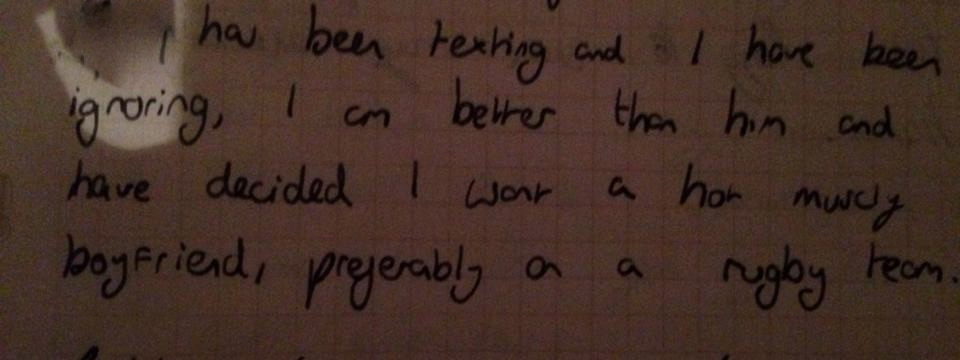 has been texting and I have been
ignoring, I am better than him and
have decided I want a hot muscly
boyfriend, preferably on a rugby team.